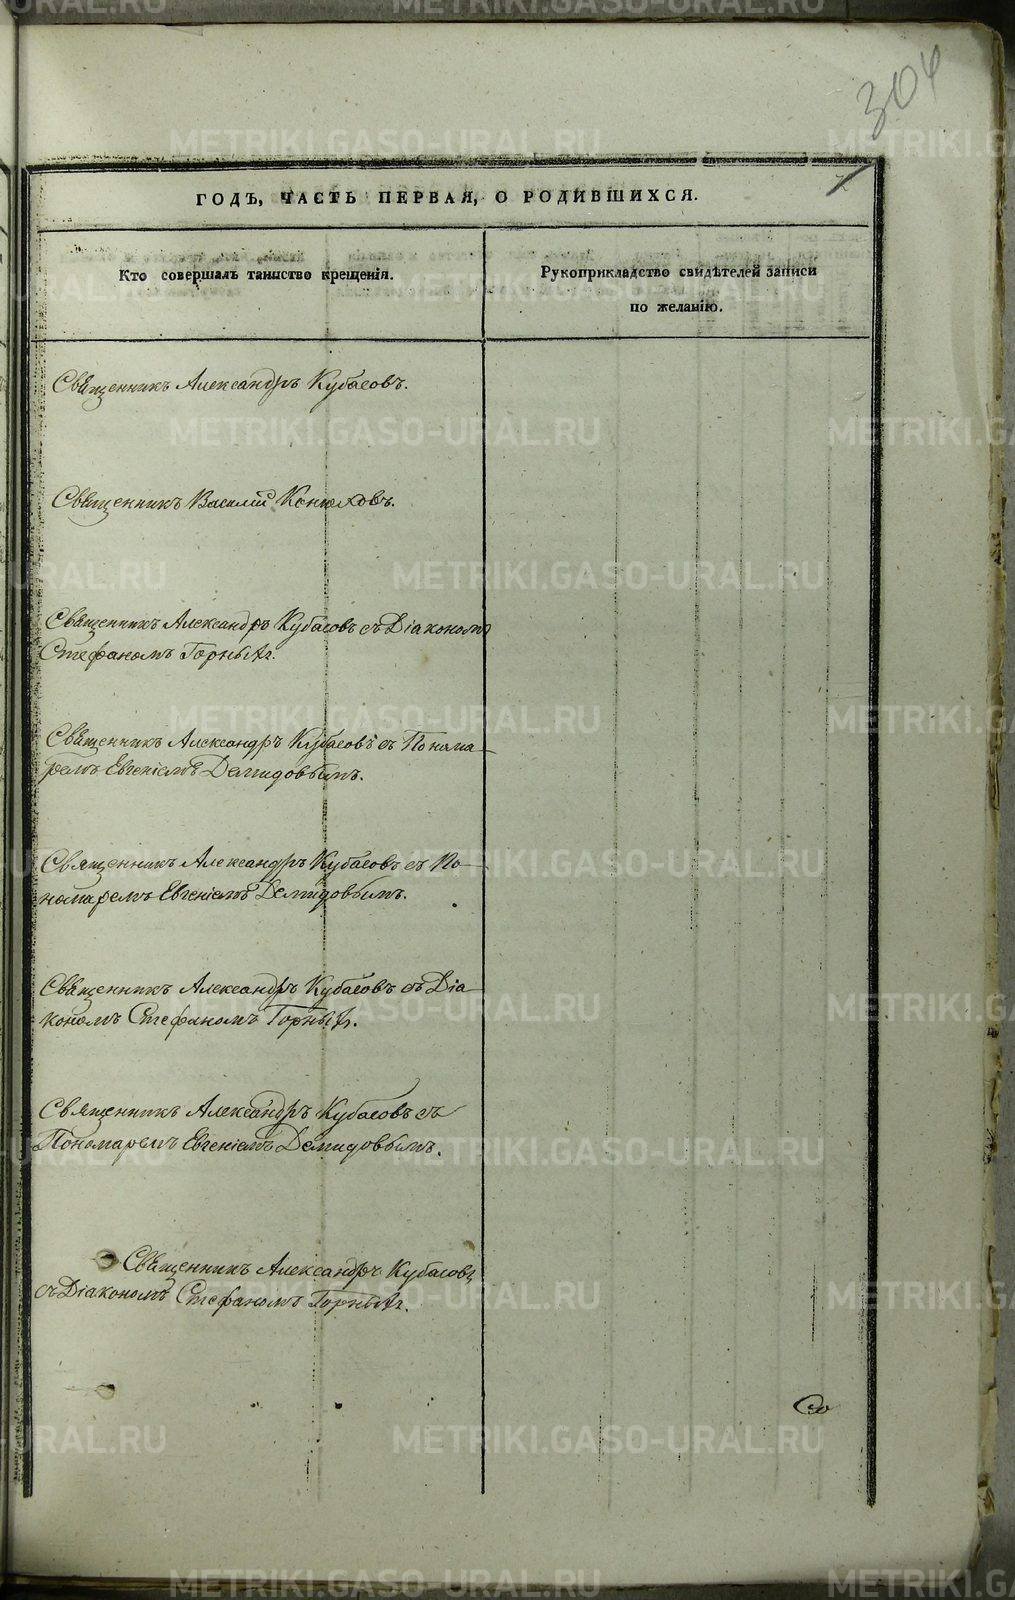 304
ГОДЪ, ЧАСТЬ ПЕРВАЯ, О РОДИВШИХСЯ.
Кто совершалъ таинство крещенія.
Рукоприкладство свидѣтелей записи
по желанію.
Священникъ Александръ Кубасовъ.
Священникъ Василій Конюховъ.
Священникъ Александръ Кубасовъ съ Діакономъ
Стефаномъ Горныхъ.
Священникъ Александръ Кубасовъ съ Понома-
ремъ Евгеніемъ Демидовымъ.
Священникъ Александръ Кубасовъ съ По-
номаремъ Евгеніемъ Демидовымъ.
Священникъ Александръ Кубасовъ съ Діа-
кономъ Стефаномъ Горныхъ.
Священникъ Александръ Кубасовъ съ
Пономаремъ Евгеніемъ Демидовымъ.
Священникъ Александръ Кубасовъ
съ Діакономъ Стефаномъ Горныхъ.
METRIKI.GASO-URAL.RU